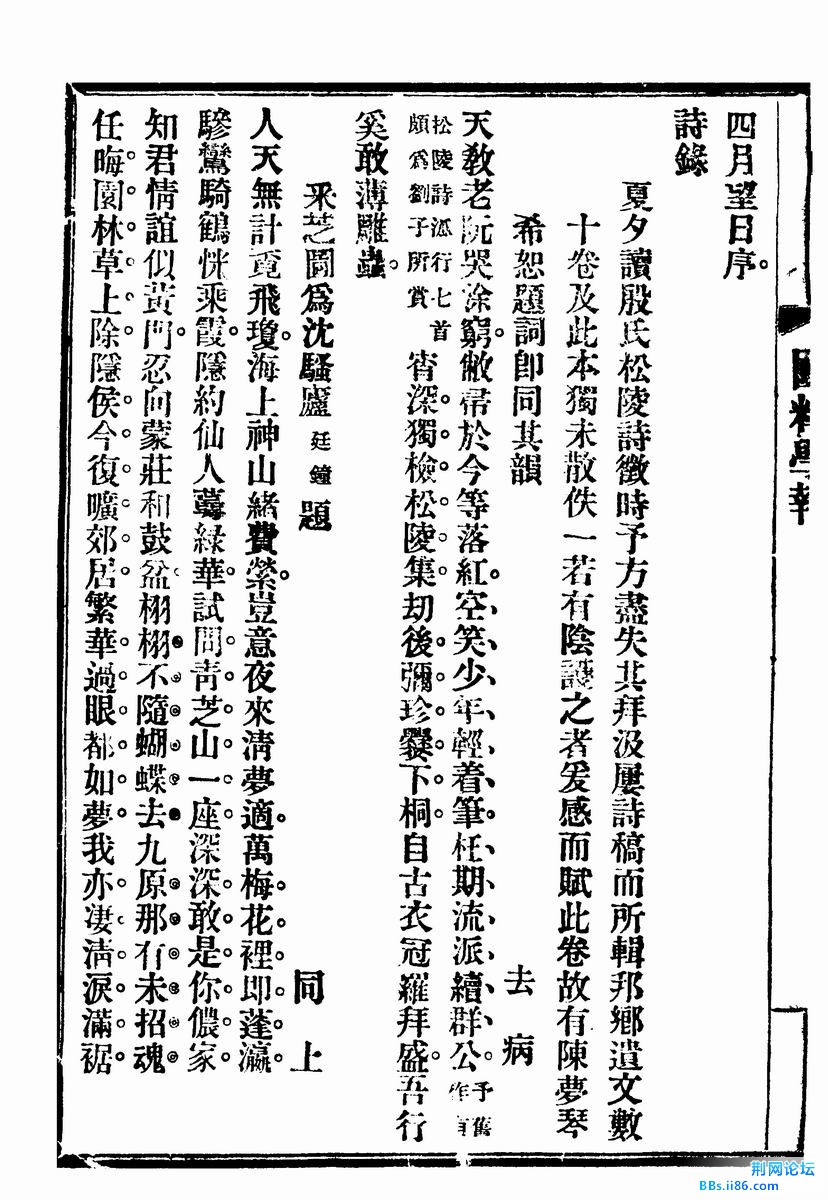 國粹學報
四月望日序。
詩錄
夏夕讀殷氏松陵詩徵時予方盡失其拜汲廔詩稿而所輯邦鄉遺文數
十卷及此本獨未散佚一若有陰護之者爰感而賦此卷故有陳夢琴
希恕題詞卽同其韻
去病
天敎老阮哭途窮。敝帚於今等落紅。空笑少年輕着筆。枉期流派續群公。予舊作有
松陵詩派行七首頗爲劉子所賞
宵深獨檢松陵集。劫後彌珍爨下桐。自古衣冠羅拜盛。吾行
奚敢薄雕蟲。
采芝圖爲沈騷廬廷鐘題
同上
人天無計覓飛瓊。海上神山緒費縈。豈意夜來淸夢適。萬梅花裡卽蓬瀛。
驂鸞騎鶴恍乘霞。隱約仙人萼綠華。試問靑芝山一座。深深敢是你儂家。
知君情誼似黃門。忍向蒙莊和鼓盆。栩栩不隨蝴蝶去。九原那有未招魂
任晦園林草上除。隱侯今復曠郊居。繁華過眼都如夢。我亦凄淸淚滿裾
荆网论坛
BBs.ii86.com